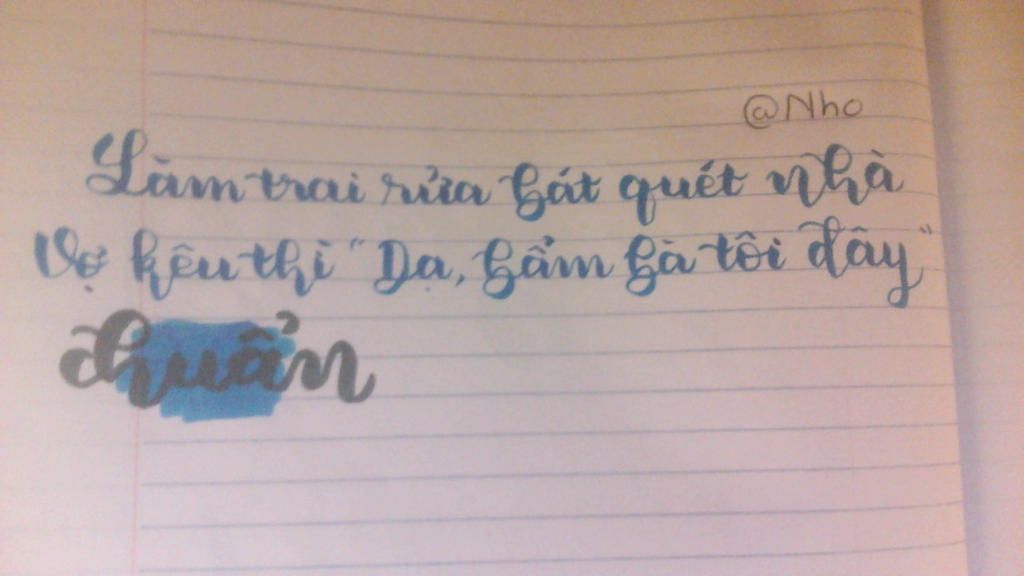 @Nho
Làm trai rửa bát quét nhà
Vợ kêu thì "Dạ, bẩm bà tôi đây"
chuẩn